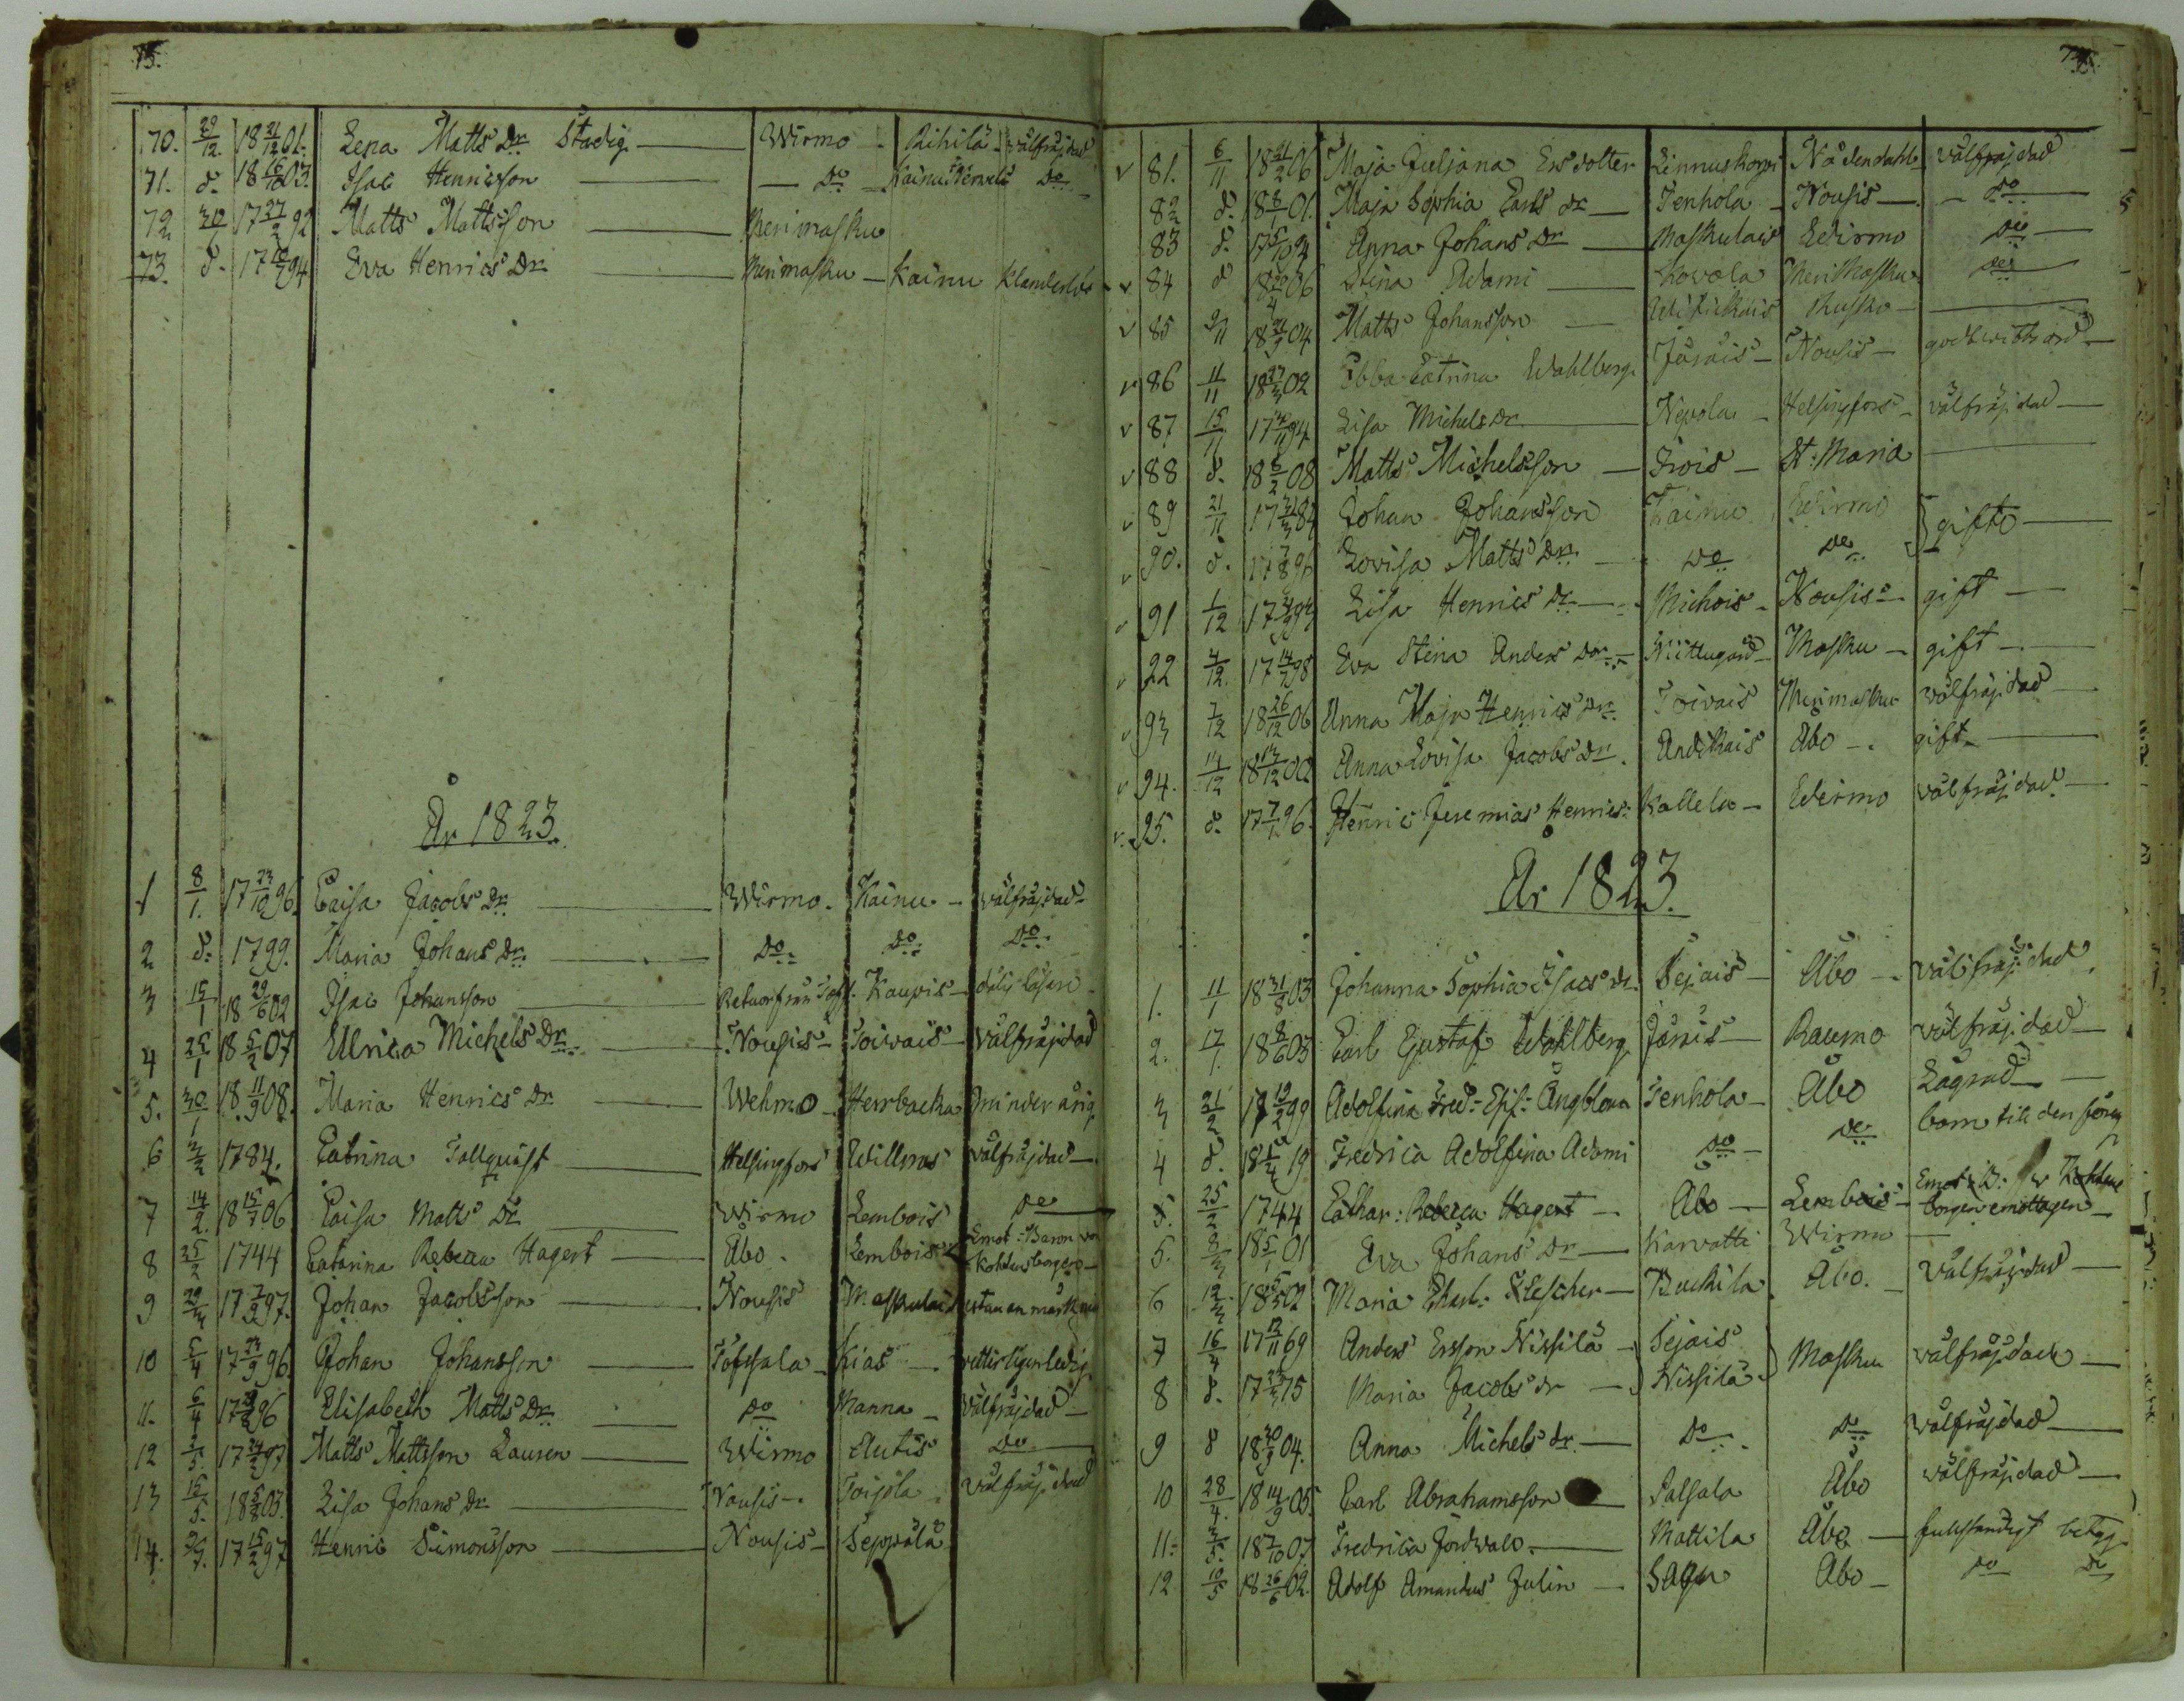 73.
70. 29/12. 18 21/12 01. Lena Matts Dr Stadig Wirmo Rihilä välfräjdad
71. d. 18 16/10 03. Isac Henricsson Do Kainu Do
72 30 17 27/2 92 Matts Mattsson Merimasku
73. d. 17 94 Eva Henrics Dr Merimasku Kainu Klanderlös
År 1823.
1 8/1. 17 23/10 96. Caisa Jacobs Dr Wirmo. Kainu välfräjdad
2 d. 1799. Maria Johans Dr Do Do Do
3 15/1 18 29/6 02 Isac Johansson Retour från Töfs. Kaupis dålig läsare
4 25/1 18 5/2 07 Ulrica Michels Dr Nousis Toivais välfräjdad
5. 30/1 18 11/9 08. Maria Henrics Dr Wehmo Herrbacka minderårig
6 3/2 1784. Catrina Tallquist Helsingfors Willnäs välfräjdad
7 14/2. 18 15/7 06 Caisa Matts Dr Wirmo Lembois Do
8 25/2 1744 Catarina Rebecca Hagert Åbo. Lembois Emot: Baron von Kothens borgen
9 29/3 17 7/9 97. Johan Jacobsson Nousis Maskulais utan anmärkning
10 5/4 17 23/9 96 Johan Johansson Töfsala Kias veterligen ledig
11. 6/4 17 96 Elisabeth Matts Dr Do Manna välfräjdad
12 5. 17 24/2 97 Matts Mattsson Lauren Wirmo Autis Do
13 15/5. 18 5/8 03. Lisa Johans Dr Nousis Toijola välfräjdad
14. 17 15/2 97 Henric Simonsson Nousis Seppälä
81. 6/11 18 21/2 06 Maja Juliana Ersdotter Linnuskorpi Nådendahl välfräjdad
82 d. 18 8/1 01. Maja Sophia Carls dr Tenhola Nousis do
83 d. 17 5/10 94 Anna Johans Dr Maskulais Wirmo Do
84 d 18 20/4 06 Stina Adami Kovola Merimasku Do
85 9/11 18 21/9 04 Matts Johansson Rusko
86 11/11 18 27/3 02 Ebba Catrina Wahlberg Järäis Nousis godt vittsord
87 15/11 17 94 Lisa Michels Dr Nepola Helsingfors välfräjdad
88 d. 18 6/2 08 Matts Michelsson Irois St: Maria
89 21/11 17 21/3 84 Johan Johansson Kainu Wirmo } gifte
90. d. 17 7/8 96 Lovisa Matts Dr Do Do
91 1/12 17 94 Lisa Henrics Dr Michois Nousis gift
92 4/12. 17 14/9 98 Eva Stina Anders Dr Masku gift
93 7/12 18 26/12 06 Anna Maja Henrics Dr Toivais Merimasku välfräjdad
94. 14/12 18 13/12 00 Anna Lovisa Jacobs Dr. Andikais Åbo gift
95. d. 17 7/1 96. Henric Jeremias Henrics: Kallela Wirmo välfräjdad
År 1823.
1. 11/1 18 31/8 03 Johanna Sophia Isacs dr. Sejais Åbo välfräjdad
2. 17/1. 18 8/6 03 Carl Gustaf Wahlberg Järäis Raumo välfräjdad
3 21/2 17 19/2 99 Adolfina Fred: Epif: Ångblom Tenhola Åbo Lagrad
4 d. 18 1/4 19 Fredrica Adolfina Adami Do Do barn till den föreg
5. 25/2 1744 Cathar: Rebecca Hagert Åbo Lembois Emot: B: v Kothens borgen emottagen
5. 8/3 18 5/1 01 Eva Johans Dr Karvatti Wirmo
6 12/3 18 5/5 02 Maria Charl: Flescher Buckila Åbo. välfräjdad
7 16/4 17 12/11 69 Anders Ersson Nissilä Sejais } Masku välfräjdade
8 d. 17 75 Maria Jacobs dr Nissilä
9 8 18 20/9 04. Anna Michels dr Do Do välfräjdad
10 28/4. 18 14/9 05. Carl Abrahamsson Salsala Åbo välfräjdad
11. 3/5. 18 7/10 07. Fredrica Jordwall. Mattila Åbo fullständigt betyg
12 10/5 18 26/6 02. Adolf Amandus Julin Sagu Åbo do do